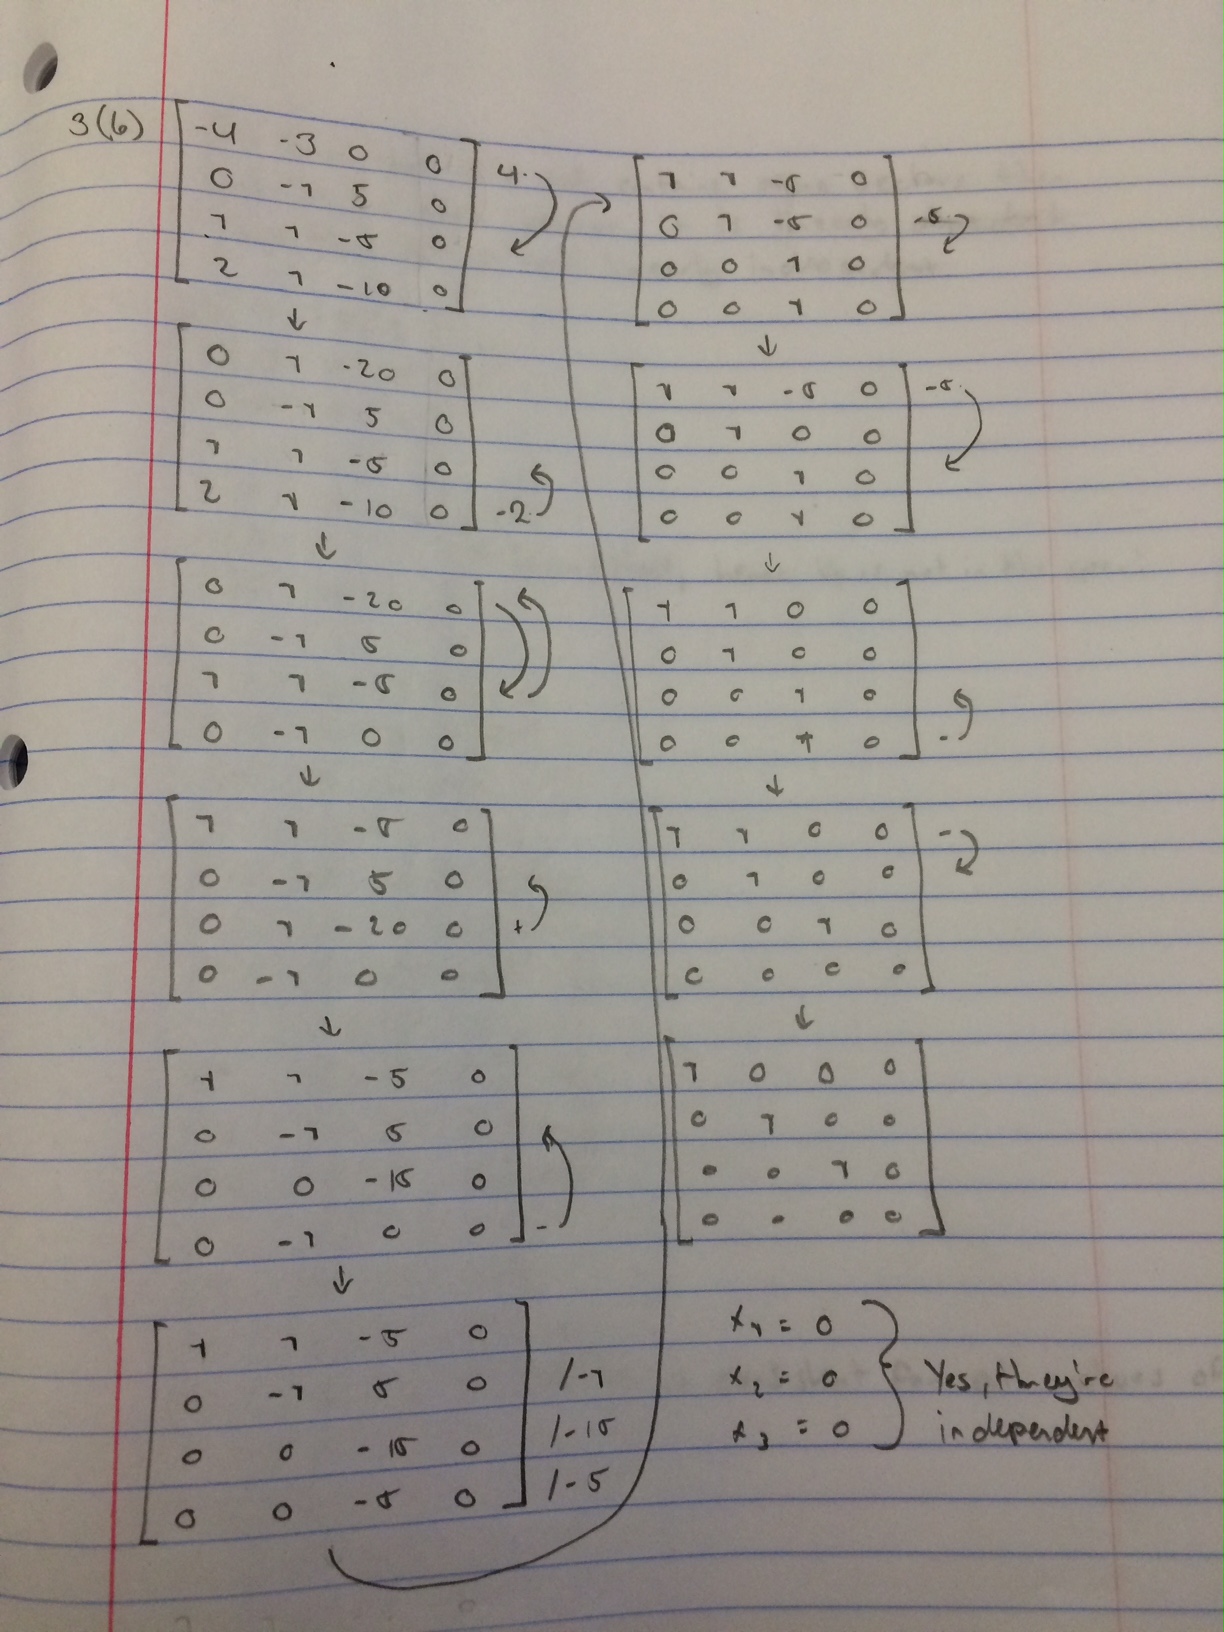 3(b)
-4 -3 0 0
0 -1 5 0
1 1 -5 0
2 1 -10 0
4·
↓
0 1 -20 0
0 -1 5 0
1 1 -5 0
2 1 -10 0 -2·
↓
0 1 -20 0
0 -1 5 0
1 1 -5 0
0 -1 0 0
↓
1 1 -5 0
0 -1 5 0
0 1 -20 0 +
0 -1 0 0
↓
1 1 -5 0
0 -1 5 0
0 0 -15 0
0 -1 0 0 -
↓
1 1 -5 0
0 -1 5 0 /-1
0 0 -15 0 /-15
0 0 -5 0 /-5
1 1 -5 0
0 1 -5 0 -5·
0 0 1 0
0 0 1 0
↓
1 1 -5 0 -5·
0 1 0 0
0 0 1 0
0 0 1 0
↓
1 1 0 0
0 1 0 0
0 0 1 0
0 0 1 0 -
↓
1 1 0 0 -
0 1 0 0
0 0 1 0
0 0 0 0
↓
1 0 0 0
0 1 0 0
0 0 1 0
0 0 0 0
x₁ = 0
x₂ = 0
x₃ = 0
Yes, they're
independent